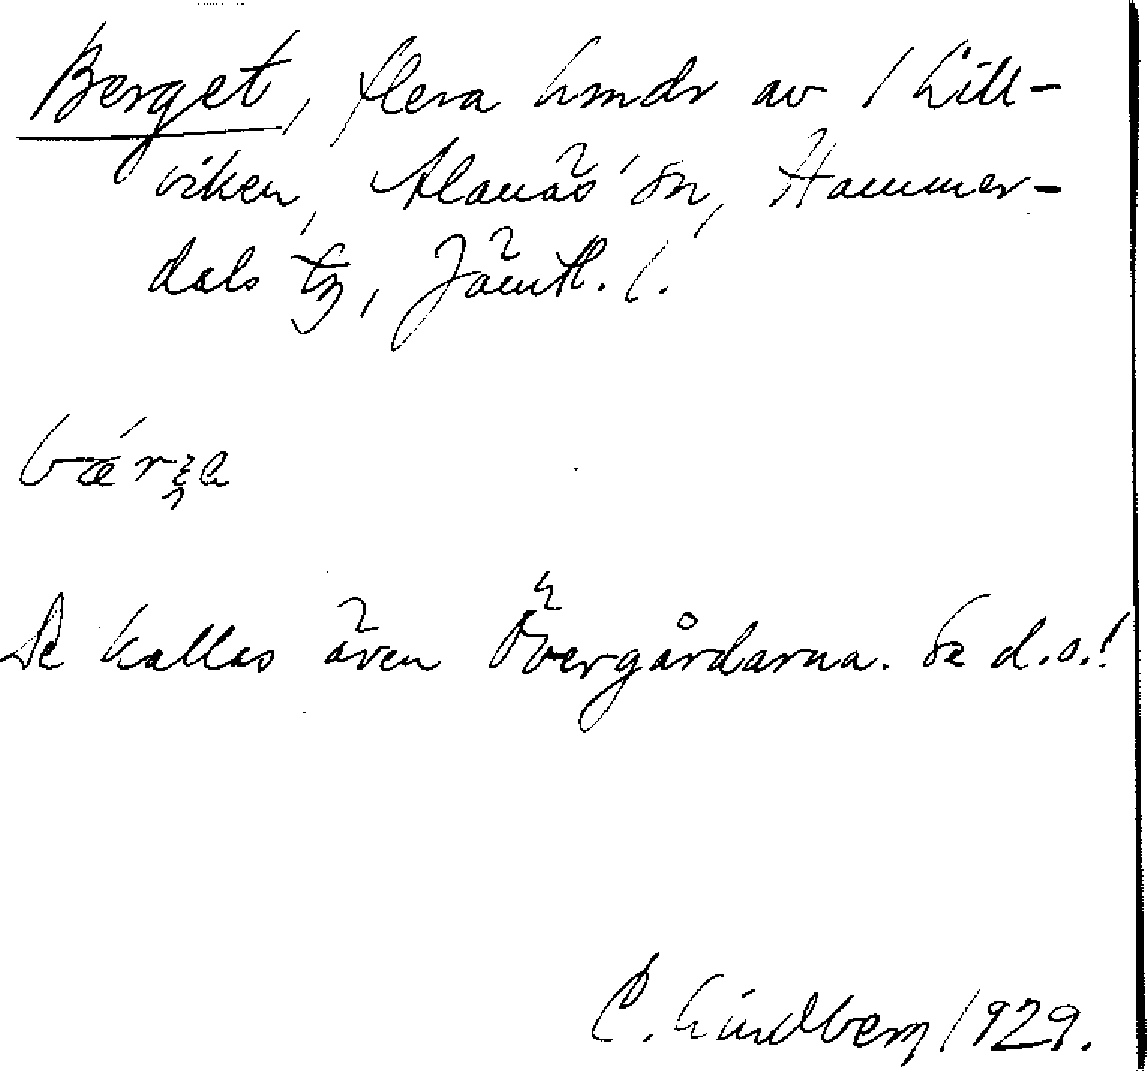 Berget, flera hmdr av 1 Lill-
viken, Alanäs sn, Hammer-
dals tg, Jämtl. l.
bær
De kallas även Övergårdarna. Se d.o.!
C. Lindberg 1929.